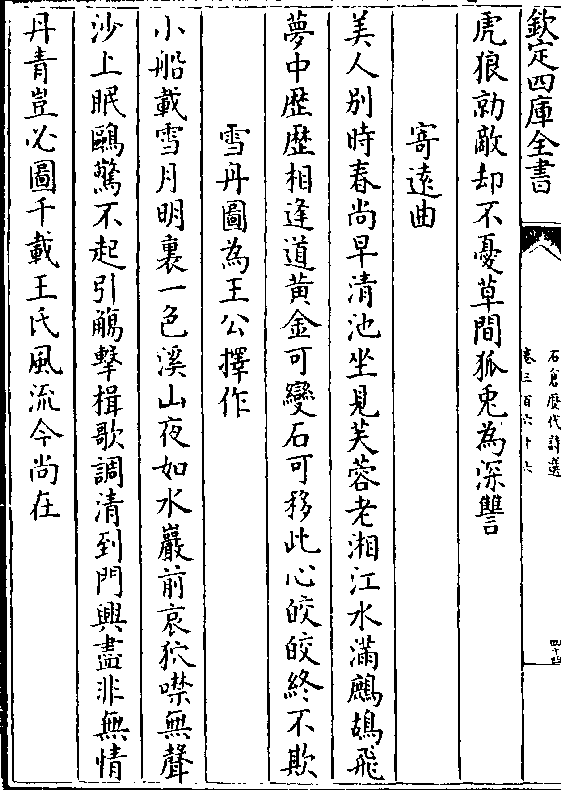 欽定四庫全書
石倉歷代詩選
卷三百六十六
四十四
虎狼勍敵却不憂草間狐兎為深讐
寄遠曲
美人别時春尚早清池坐見芙蓉老湘江水滿鷓鴣飛
夢中歴歴相逢道黄金可變石可移此心皎皎終不欺
雪舟圖為王公擇作
小船載雪月明裏一色溪山夜如水巖前哀狖噤無聲
沙上眠鷗驚不起引觴擊楫歌調清到門興盡非無情
丹青豈必圖千載王氏風流今尚在